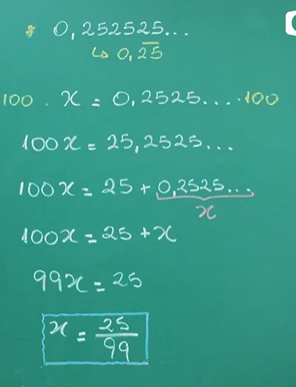 * 0,252525...
↳ 0,2̅5̅
100 . x = 0,2525.... .100
100x = 25,2525...
100x = 25 + 0,2525...
x
100x = 25 + x
99x = 25
x = 25/99